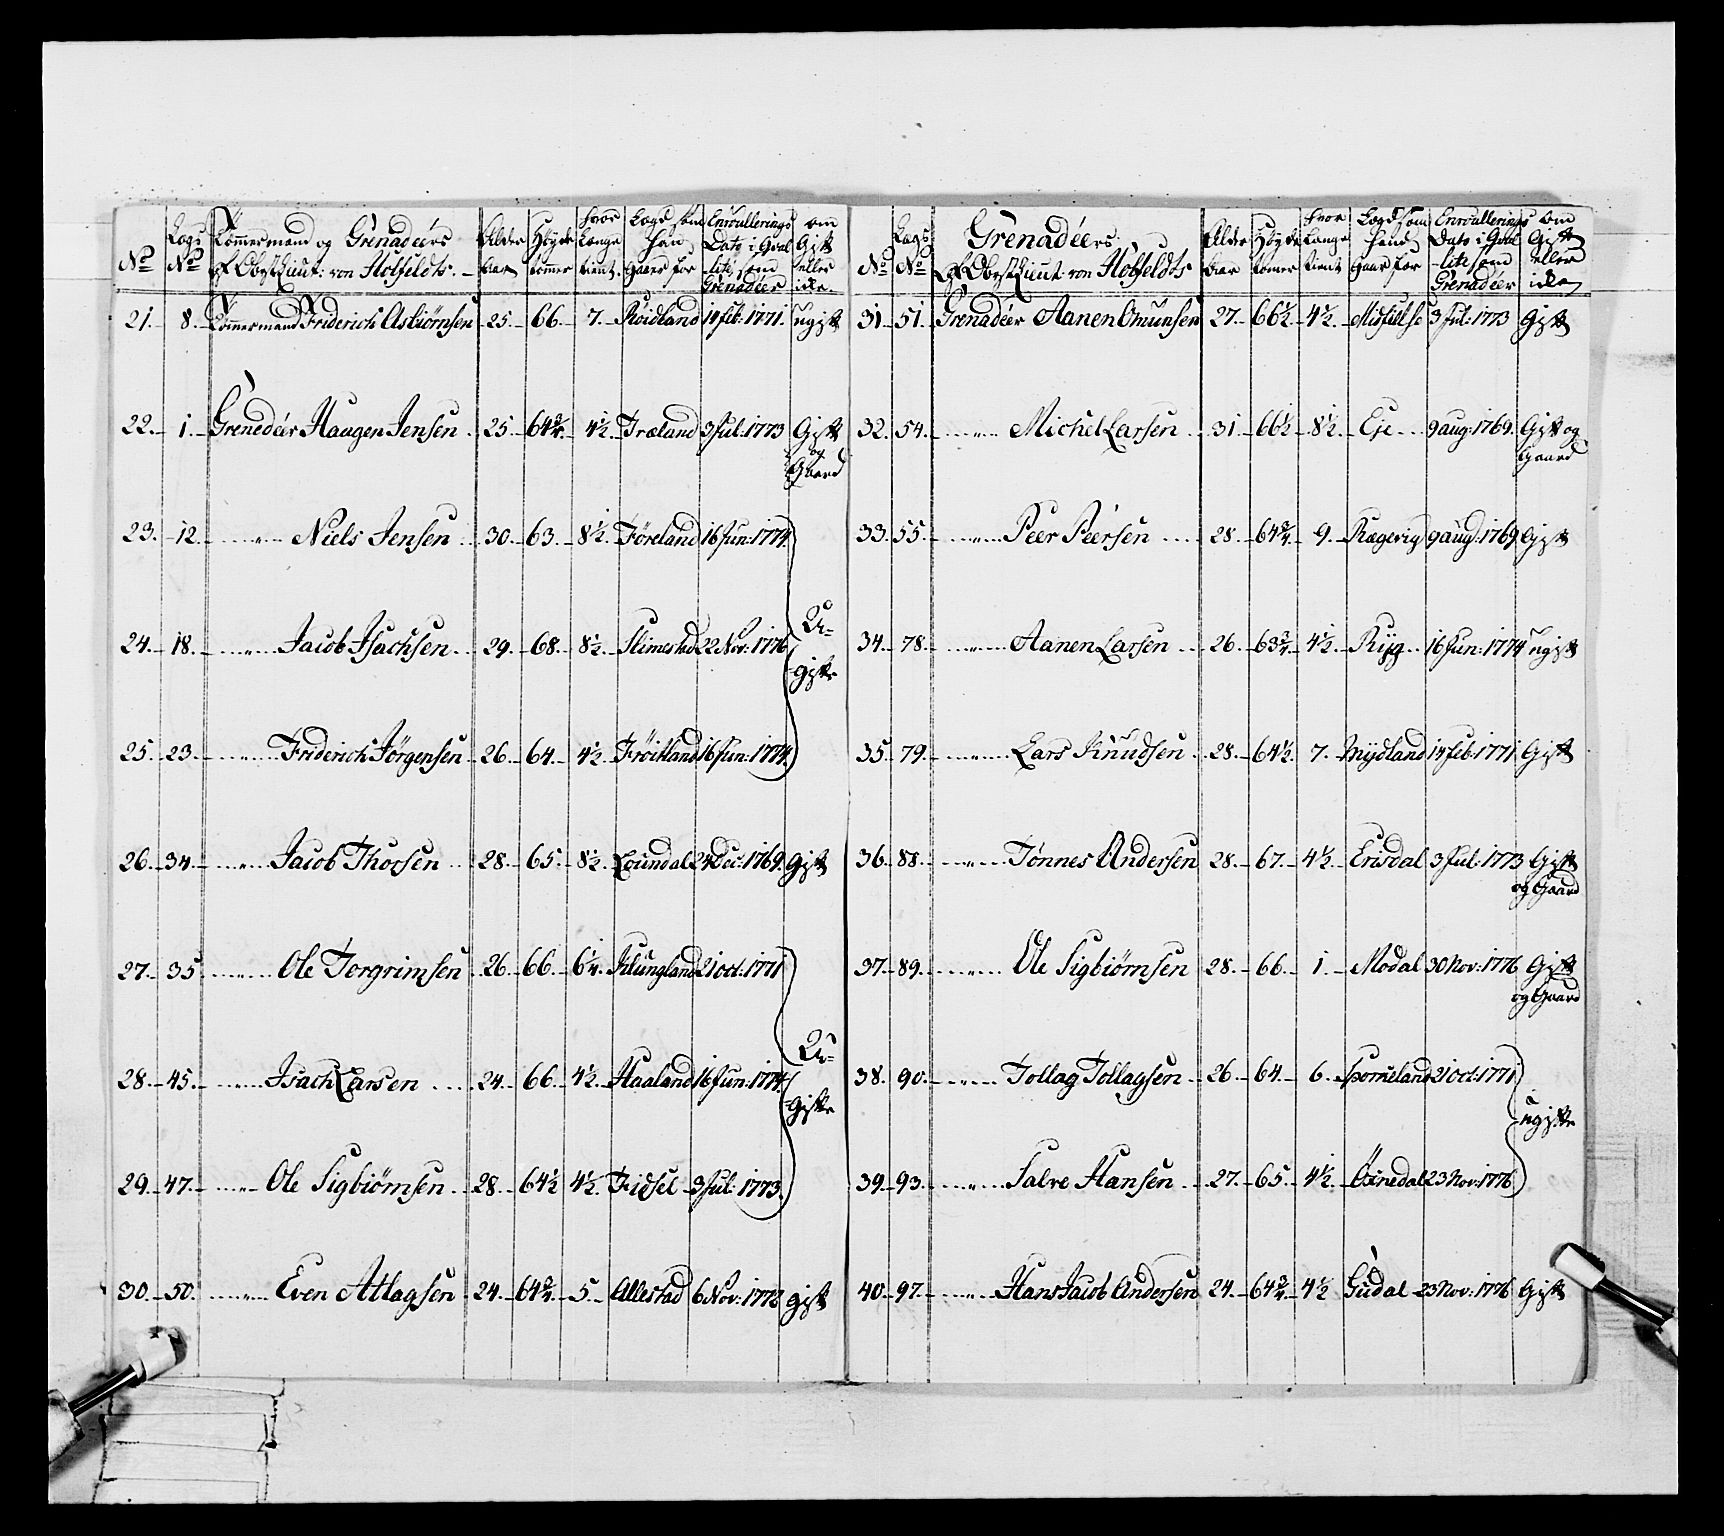 No Lægs No Tømmermænd og Grenadéers af Obrist Lieut: von Holfeldts. Alder Aar Høyde tommer hvor Længe tient Lægd som han staaer for Enroullerings Dato i Qvalité som Grenadéer om Gift eller icke
21. 8. Tømmermand Friderich Asbiørnsen 25. 66. 7. Røidland 14 feb: 1771. ugift
22. 1. Grenedéer Haagen Jensen 25. 64¾. 4½. Træland 3 Jul: 1773 Gift
og
Gaard
23. 12. " Niels Jensen 30. 63. 8½. Föreland 16 Jun: 1774.
24. 18. " Jacob Isachsen 29. 68. 8½. Slimestad 22 Nov: 1776
U=
gifte
25. 23. " Friderich Jörgensen 26. 64. 4½. Fröitland 16 Jun: 1774.
26. 34. " Jacob Thorsen 28. 65. 8½. Loundal 24 Dec: 1769. Gift
27. 35. " Ole Torgrimsen 26. 66. 6¼. Klungland 21 oct: 1771
28. 45. " Isach Larsen 24. 66. 4½. Haaland 16 Jun: 1774.
U=
gifte
29. 47. " Ole Sigbiörnsen 28. 64½ 4½. Fidsel 3 Jul: 1773.
30. 50. " Even Atlagsen 24. 64¾. 5. Allestad 6 Nov: 1772 gift
No Lægs No Grenadéers af Obrist Lieut von Holfeldts Alder Aar Høyde tomer hvor Længe tient Lægd som hand staar for Enroullerings Dato i Qvalité som Grenadéer om Gift eller icke
31. 51. Grenadéer Aanen Omunsen 27. 66½ 4½. 3 Jul: 1773 Gift
32. 54. " Michel Larsen 31. 66½ 8½. Eje 9 aug: 1769. Gift og
Gaard
33. 55. " Peer Peersen 28. 64¾. 9. Rægevig 9 aug: 1769 Gift
34. 78. " Aanen Larsen 26. 63¾. 4½. Ryg 16 Jun: 1774 ugift
35. 79. " Lars Knudsen 28. 64½. 7. Mydland 14 feb: 1771. Gift
36. 88. " Tønnes Andersen 28. 67. 4½. Erisdal 3 Jul: 1773 Gift
og Gaard
37. 89. " Ole Sigbiørnsen 28. 66. 1. Modal 30 Nov: 1776 Gift
og Gaard
38. 90. " Tollag Tollagsen 26. 64. 6. 21 oct: 1771
ugifte
39. 93. " Salve Hansen 27. 65. 4½. Östnedal 23 Nov: 1776
40. 97. " Hans Jacob Andersen 24. 64¾. 4½ Gudal 23 Nov: 1776 Gift